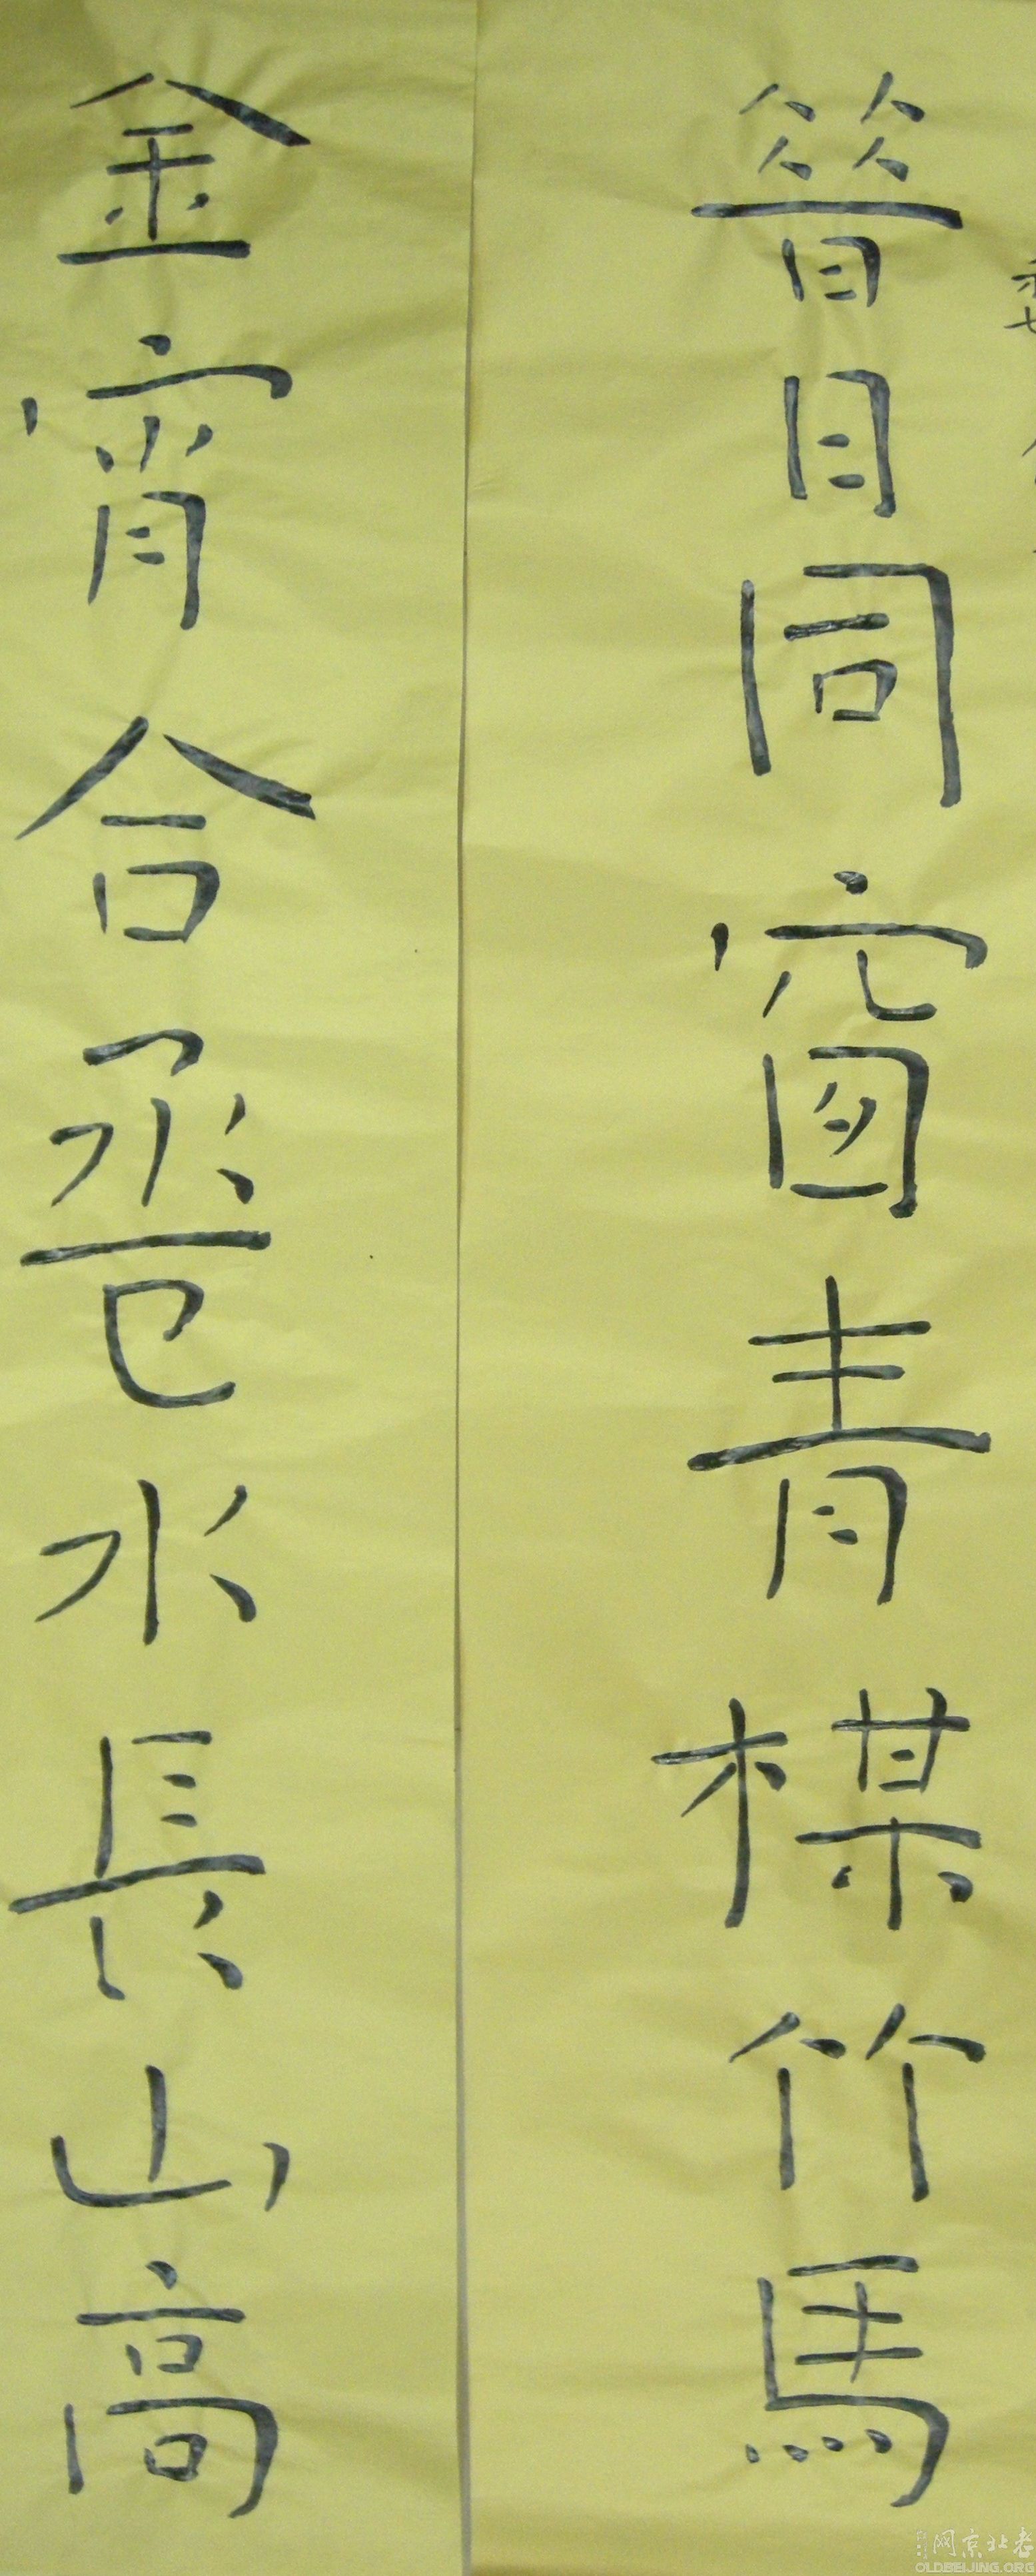 昔日同窗青楳竹馬
金宵合巹水長山高
老北京网
OLDBEIJING.ORG